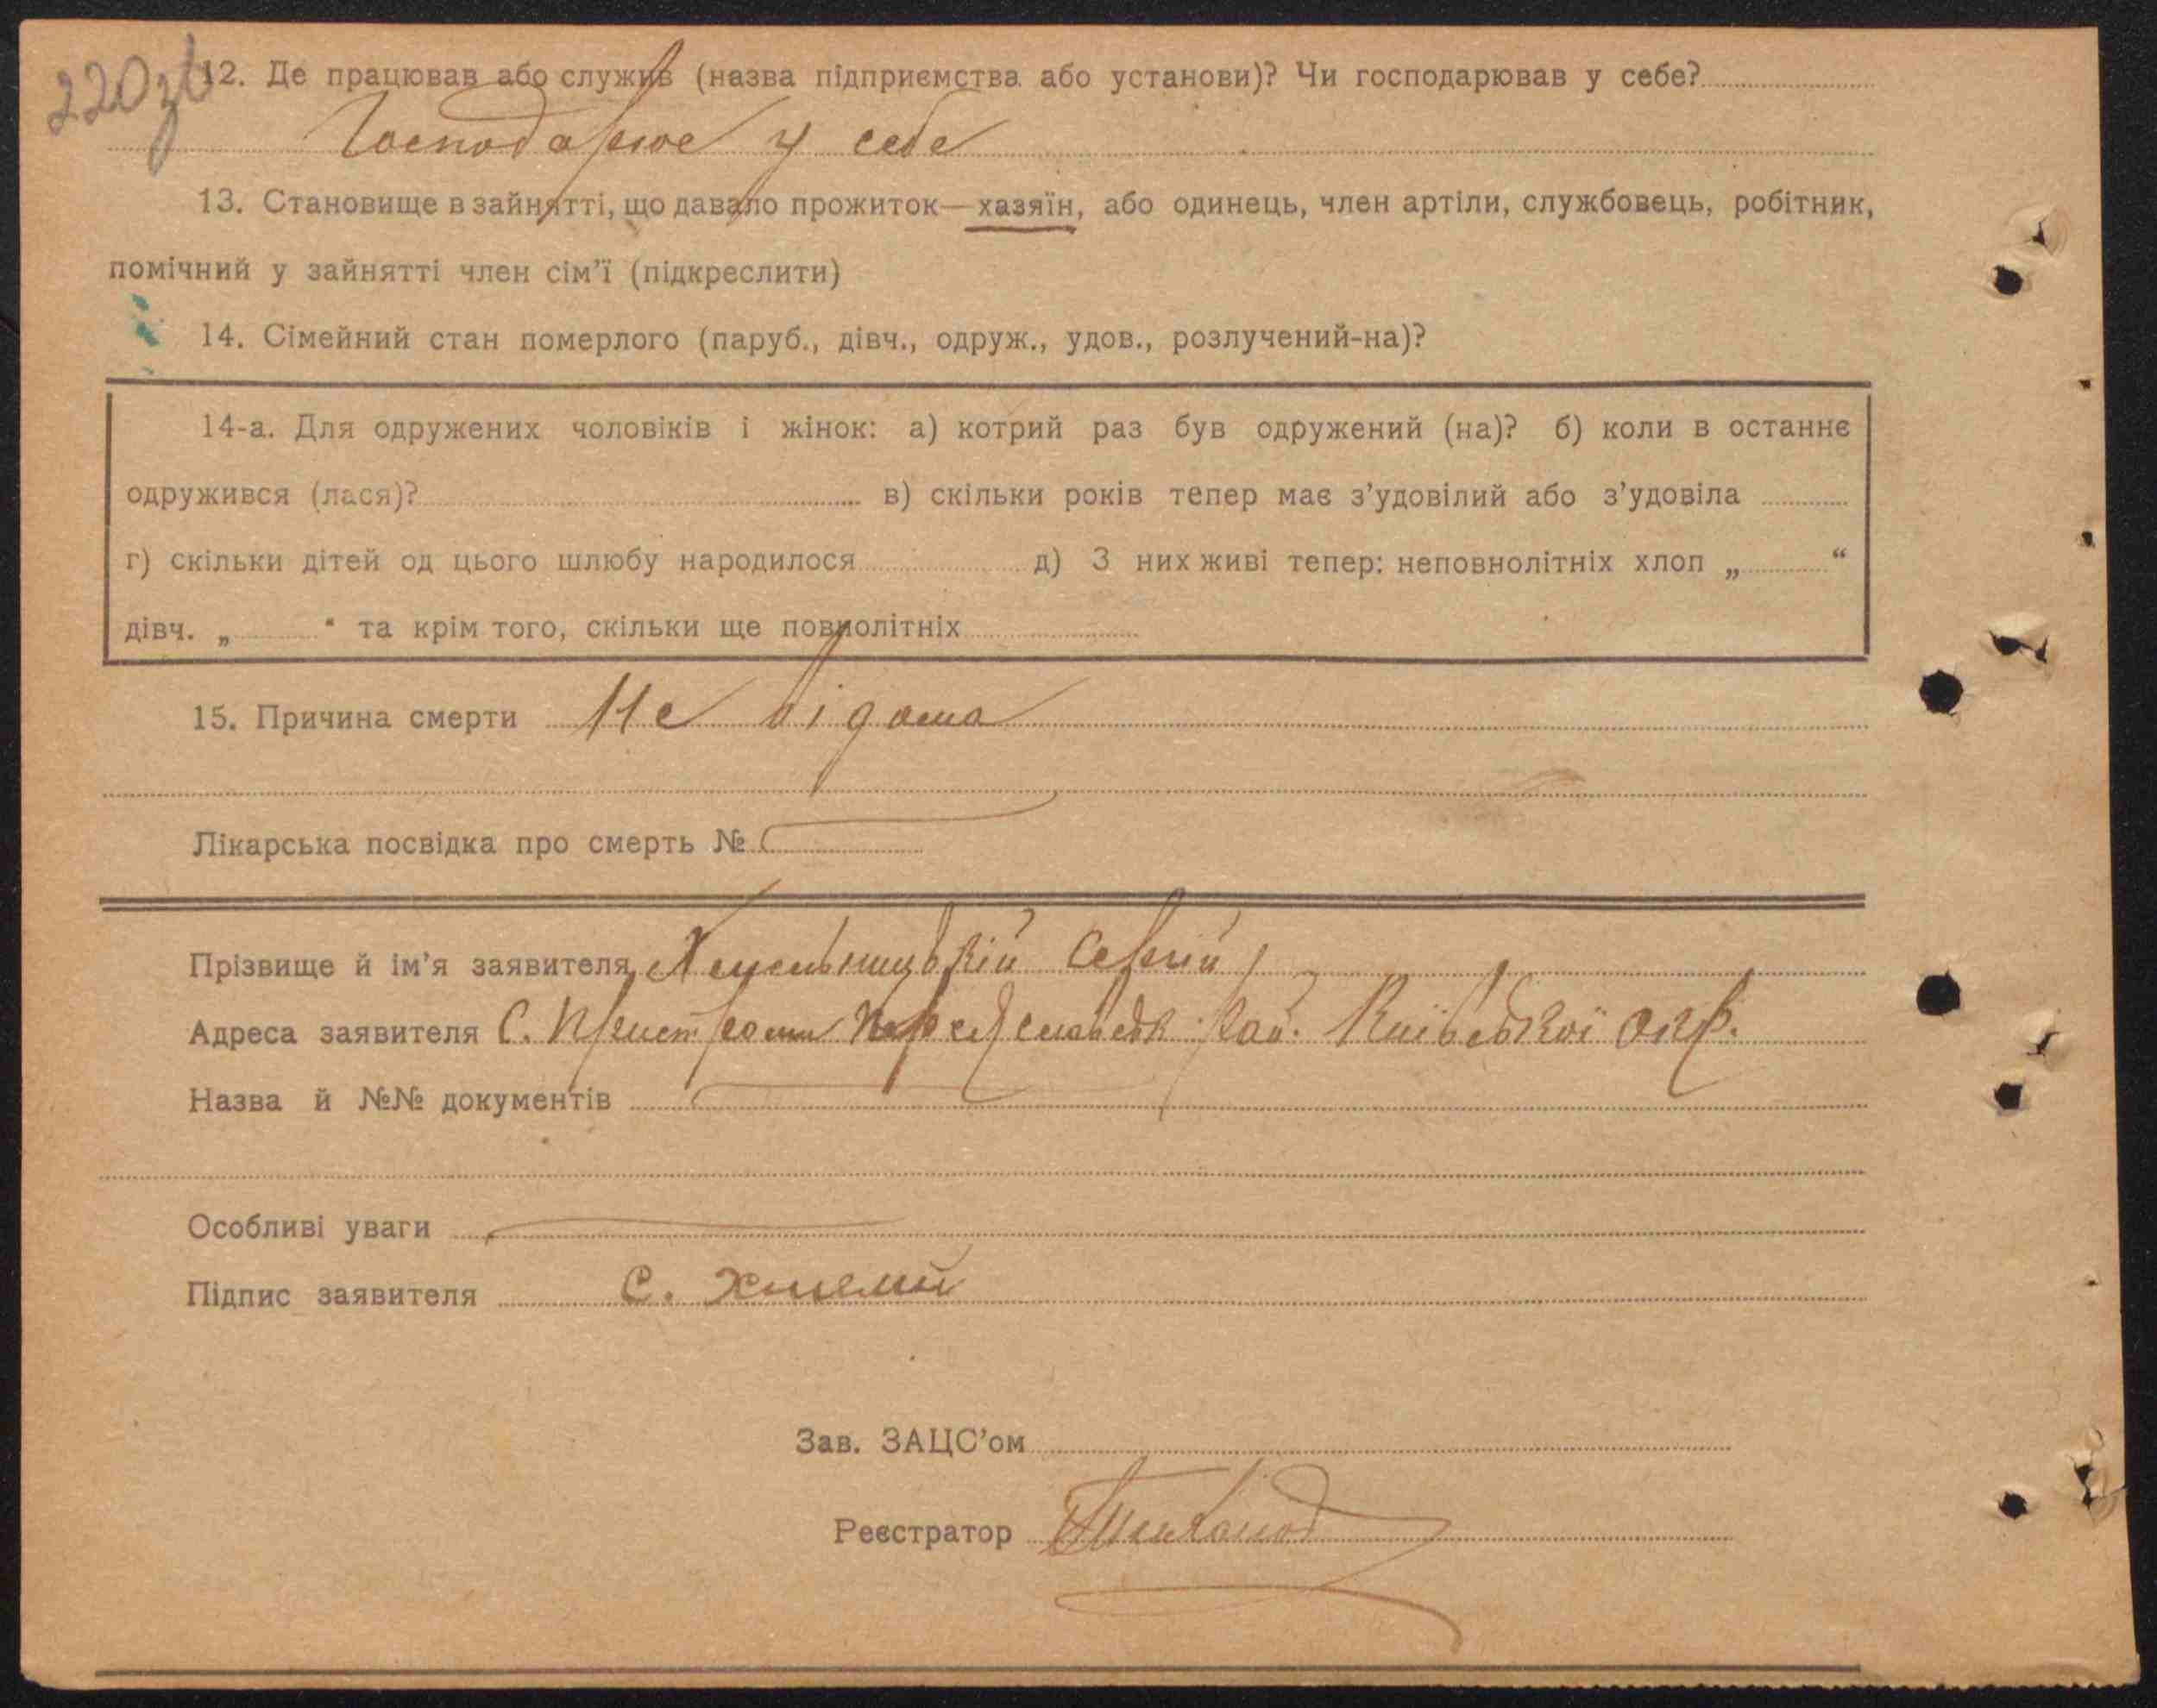 220зв
12. Де працював або служив (назва підприємства або установи)? Чи господарював у себе?
Господарює у себе
13. Становище в зайнятті, що давало прожиток—хазяїн, або одинець, член артіли, службовець, робітник,
помічний у зайнятті член сім’ї (підкреслити)
14. Сімейний стан померлого (паруб., дівч., одруж., удов., розлучений-на)?
14-а. Для одружених чоловіків і жінок: а) котрий раз був одружений (на)? б) коли в останнє
одружився (лася)? в) скільки років тепер має з’удовілий або з’удовіла
г) скільки дітей од цього шлюбу народилося д) З них живі тепер: неповнолітніх хлоп „ “
дівч. „ “ та крім того, скільки ще повнолітніх
15. Причина смерти Не відома
Лікарська посвідка про смерть №
Прізвище й ім’я заявителя Хмельницькій Сергій
Адреса заявителя С. Пристроми Переяславськ. рай. Київської окр.
Назва й №№ документів
Особливі уваги
Підпис заявителя С.
Зав. ЗАЦС’ом
Реєстратор